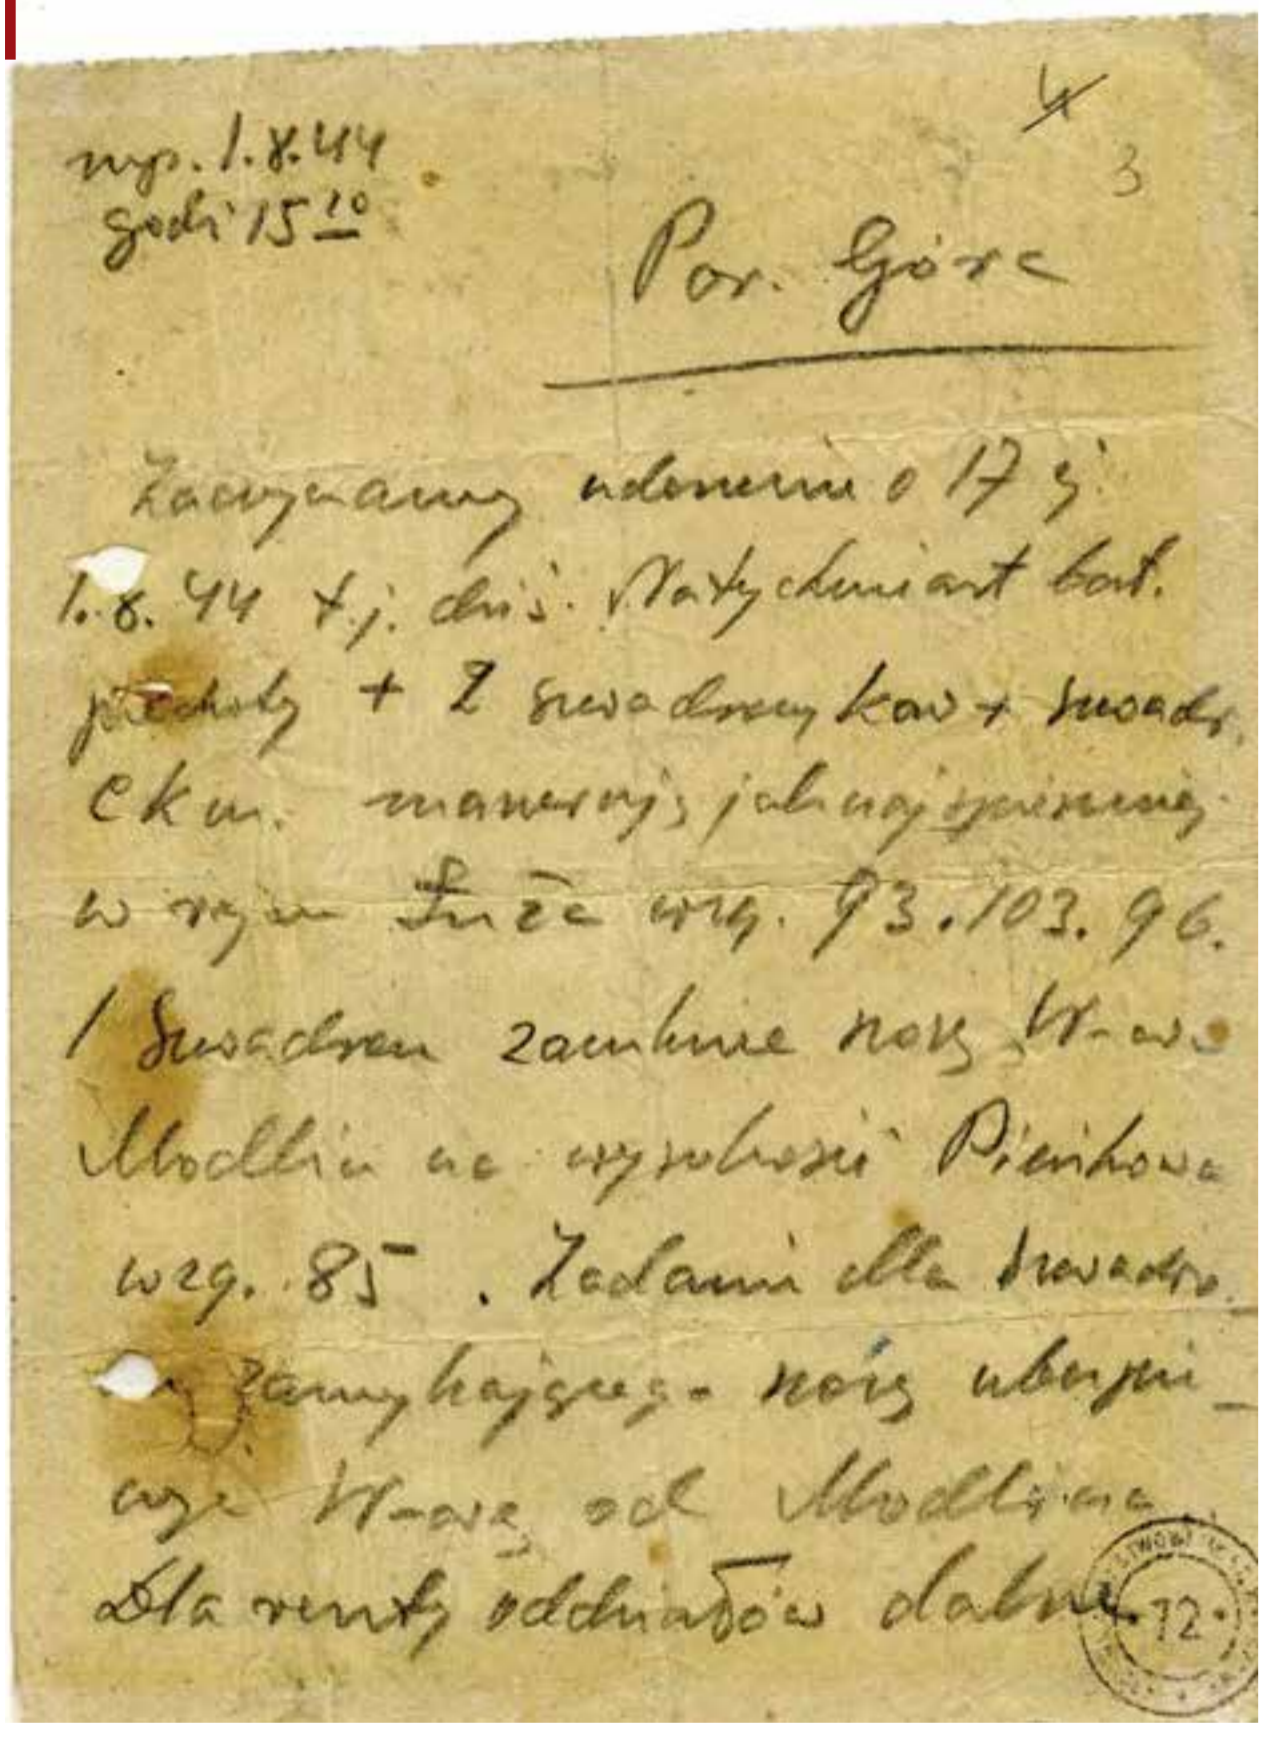 4
3
mp. 1.8.44
godz 15 10
Por. Góra
Zaczynamy uderzenie o 17 ej
1.8.44 t.j. dziś. Natychmiast bat.
piechoty + 2 szwadrony kaw + szwadr.
ckm. manewrują jaknajspieszniej
w rejon Łuże wzg. 93.103.96.
1 Szwadron zamknie szosę W-wa
Modlin na wysokości Pieńkowa
wzg. 85. Zadanie dla szwadro
zamykającego szosę ubezpie-
cza W-wę od Modlina
Dla reszty oddziałów dalsze
72